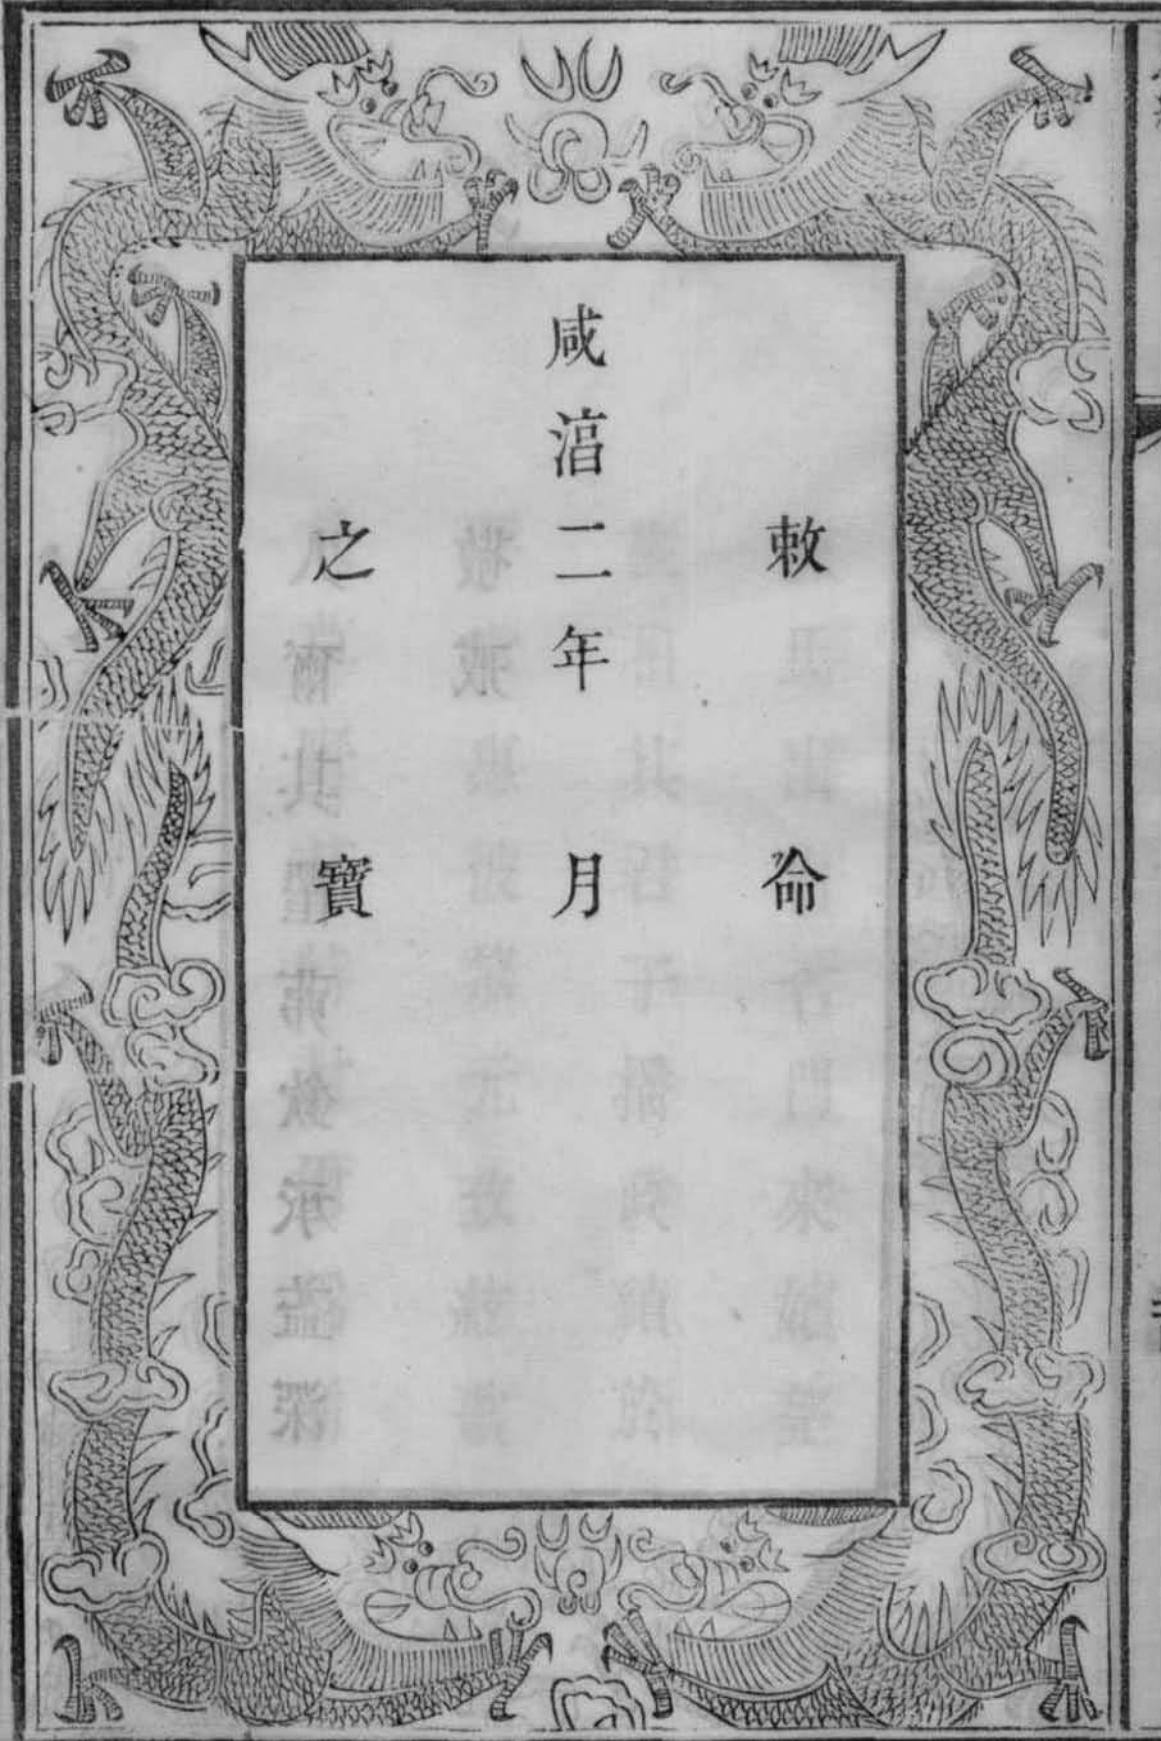 敕命
咸湻二年月
之寶